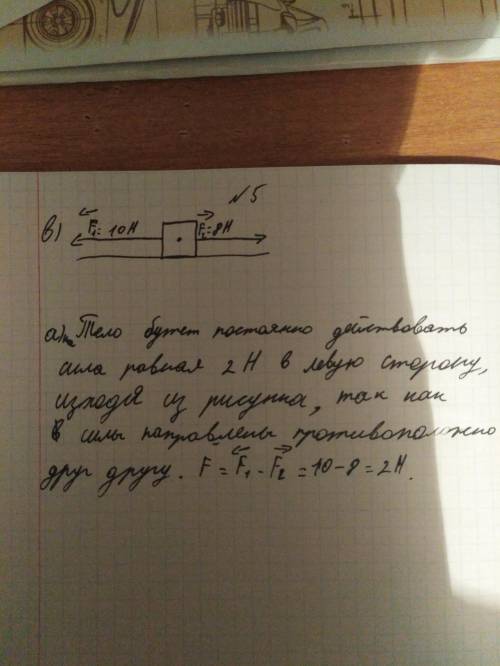 №5
в) F₁=10Н F₂=8Н
а) на Тело будет постоянно действовать
сила равная 2Н в левую сторону,
исходя из рисунка, так как
силы направлены противоположно
друг другу. F = F₁ - F₂ = 10-8 = 2Н.